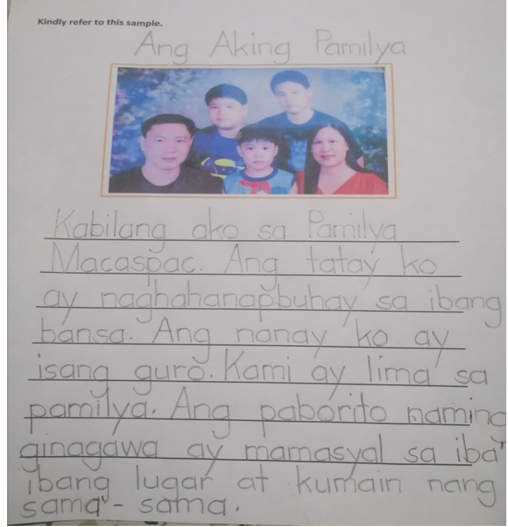 Kindly refer to this sample.
Ang Aking Pamilya
Kabilang ako sa Pamilya
Macaspac. Ang tatay ko
ay naghahanapbuhay sa ibang
bansa. Ang nanay ko ay
isang guro. Kami ay lima sa
pamilya. Ang paborito naming
ginagawa ay mamasyal sa iba'
ibang lugar at kumain nang
sama - sama.